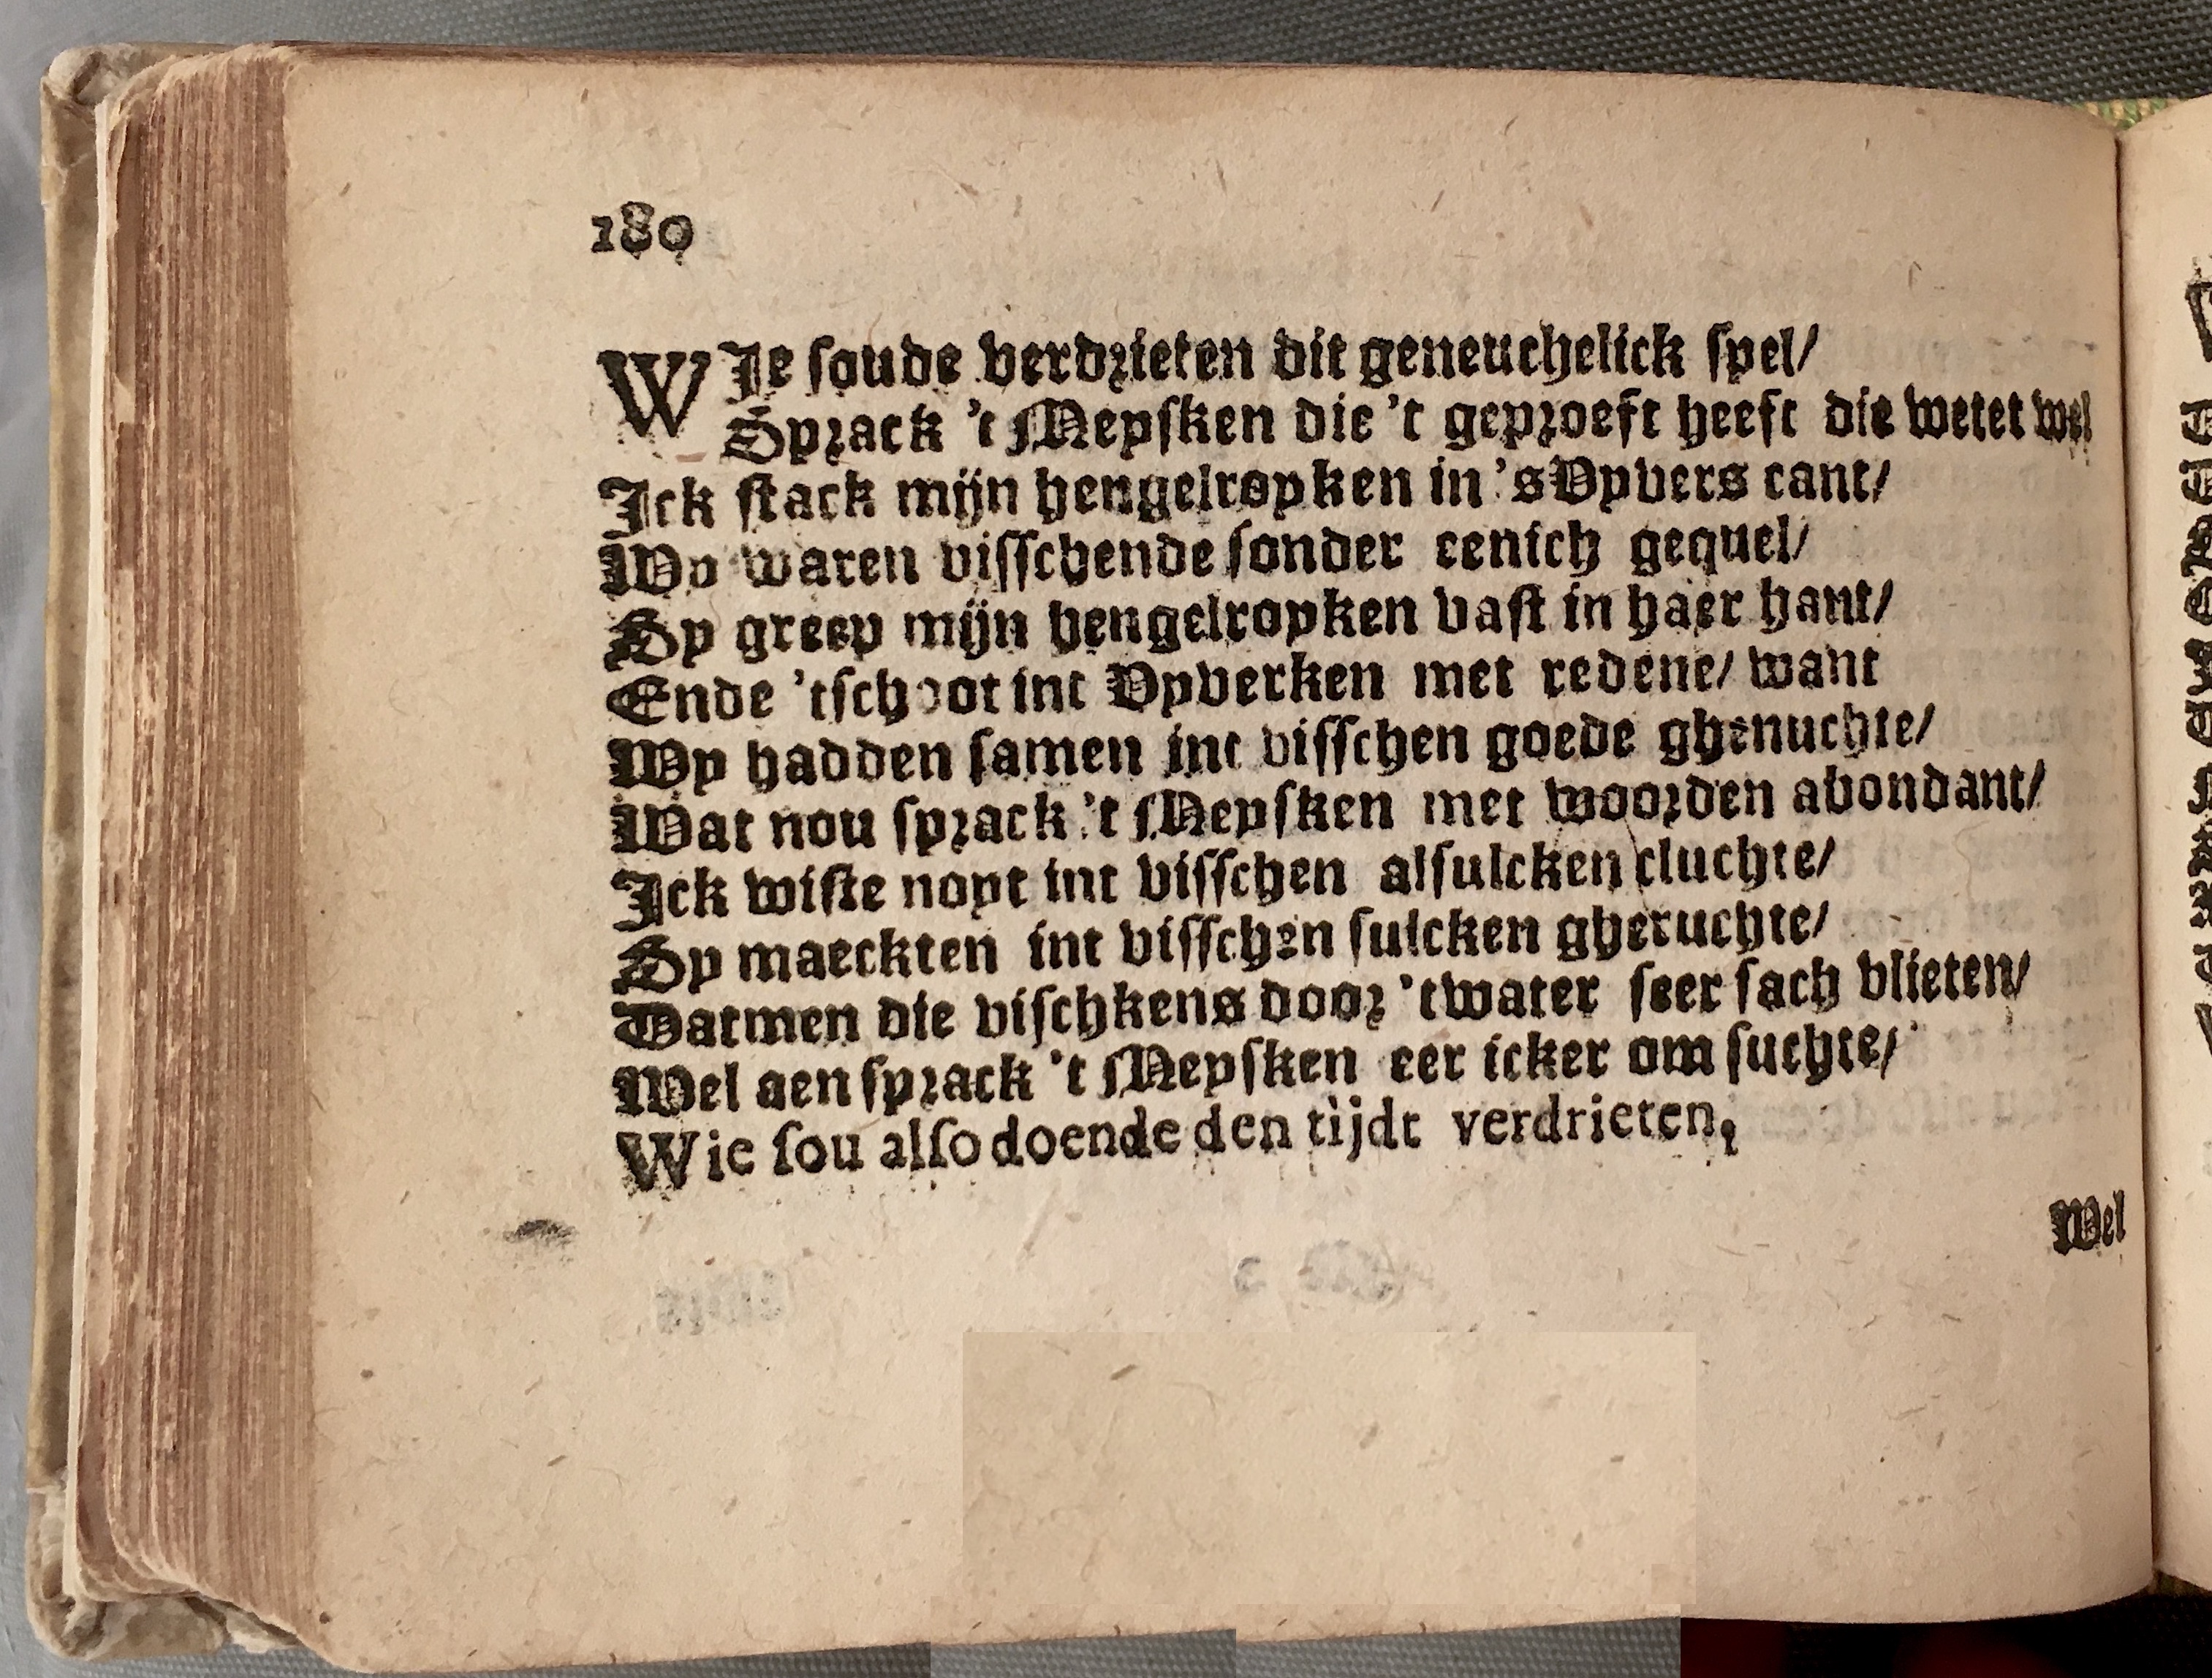 180
WIe soude verdrieten dit geneuchelick spel/
Sprack 't Meysken die 't geproeft heeft die wetet wel
Ick stack mijn hengelroyken in 's Vyvers cant/
Wy waren visschende sonder eenich gequel/
Sy greep mijn hengelroyken vast in haer hant/
Ende 'tschoot int Vyverken met redene/ want
Wy hadden samen int visschen goede ghenuchte/
Wat nou sprack 't Meysken met woorden abondant/
Ick wiste noyt int visschen alsulcken cluchte/
Sy maeckten int visschen sulcken gheruchte/
Datmen die vischkens door 'twater seer sach vlieten/
Wel aen sprack 't Meysken eer icker om suchte/
Wie sou also doende den tijdt verdrieten,
Wel